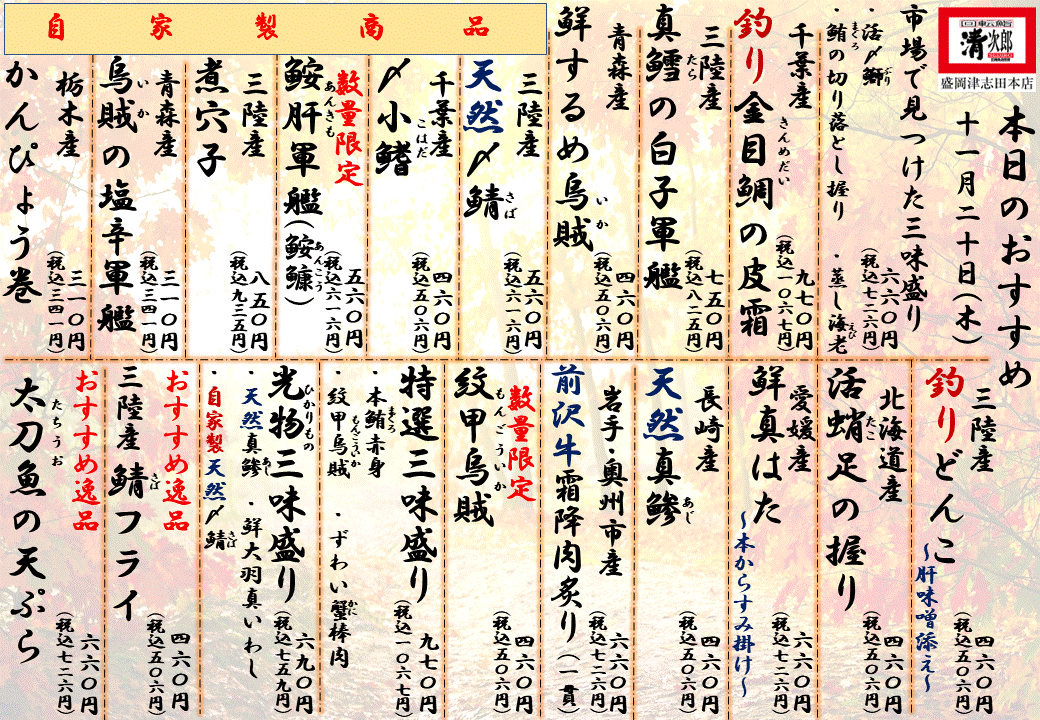 回転鮨
清次郎
盛岡津志田本店
本日のおすすめ
十一月二十日(木)
市場で見つけた三味盛り
・活〆鰤 ・鮪の切り落とし握り ・蒸し海老
ぶり
まぐろ
えび
六六〇円
(税込七二六円)
千葉産
釣り金目鯛の皮霜
きんめだい
九七〇円
(税込一〇六七円)
三陸産
真鱈の白子軍艦
たら
七五〇円
(税込八二五円)
青森産
鮮するめ烏賊
いか
四六〇円
(税込五〇六円)
自家製商品
三陸産
天然〆鯖
さば
五六〇円
(税込六一六円)
千葉産
〆小鰭
こはだ
四六〇円
(税込五〇六円)
数量限定
鮟肝軍艦(鮟鱇)
あんきも
あんこう
五六〇円
(税込六一六円)
三陸産
煮穴子
八五〇円
(税込九三五円)
青森産
烏賊の塩辛軍艦
いか
三一〇円
(税込三四一円)
栃木産
かんぴょう巻
三一〇円
(税込三四一円)
三陸産
釣りどんこ
~肝味噌添え~
四六〇円
(税込五〇六円)
北海道産
活蛸足の握り
たこ
四六〇円
(税込五〇六円)
愛媛産
鮮真はた
~本からすみ掛け~
六六〇円
(税込七二六円)
長崎産
天然真鯵
あじ
四六〇円
(税込五〇六円)
岩手・奥州市産
前沢牛霜降肉炙り(一貫)
六六〇円
(税込七二六円)
数量限定
紋甲烏賊
もんごういか
四六〇円
(税込五〇六円)
特選三味盛り
・本鮪赤身 ・ずわい蟹棒肉
まぐろ
かに
・紋甲烏賊
もんごういか
九七〇円
(税込一〇六七円)
光物三味盛り
ひかりもの
・天然真鯵 ・鮮大羽真いわし
あじ
・自家製天然〆鯖
さば
六九〇円
(税込七五九円)
おすすめ逸品
三陸産 鯖フライ
さば
四六〇円
(税込五〇六円)
おすすめ逸品
太刀魚の天ぷら
たちうお
六六〇円
(税込七二六円)